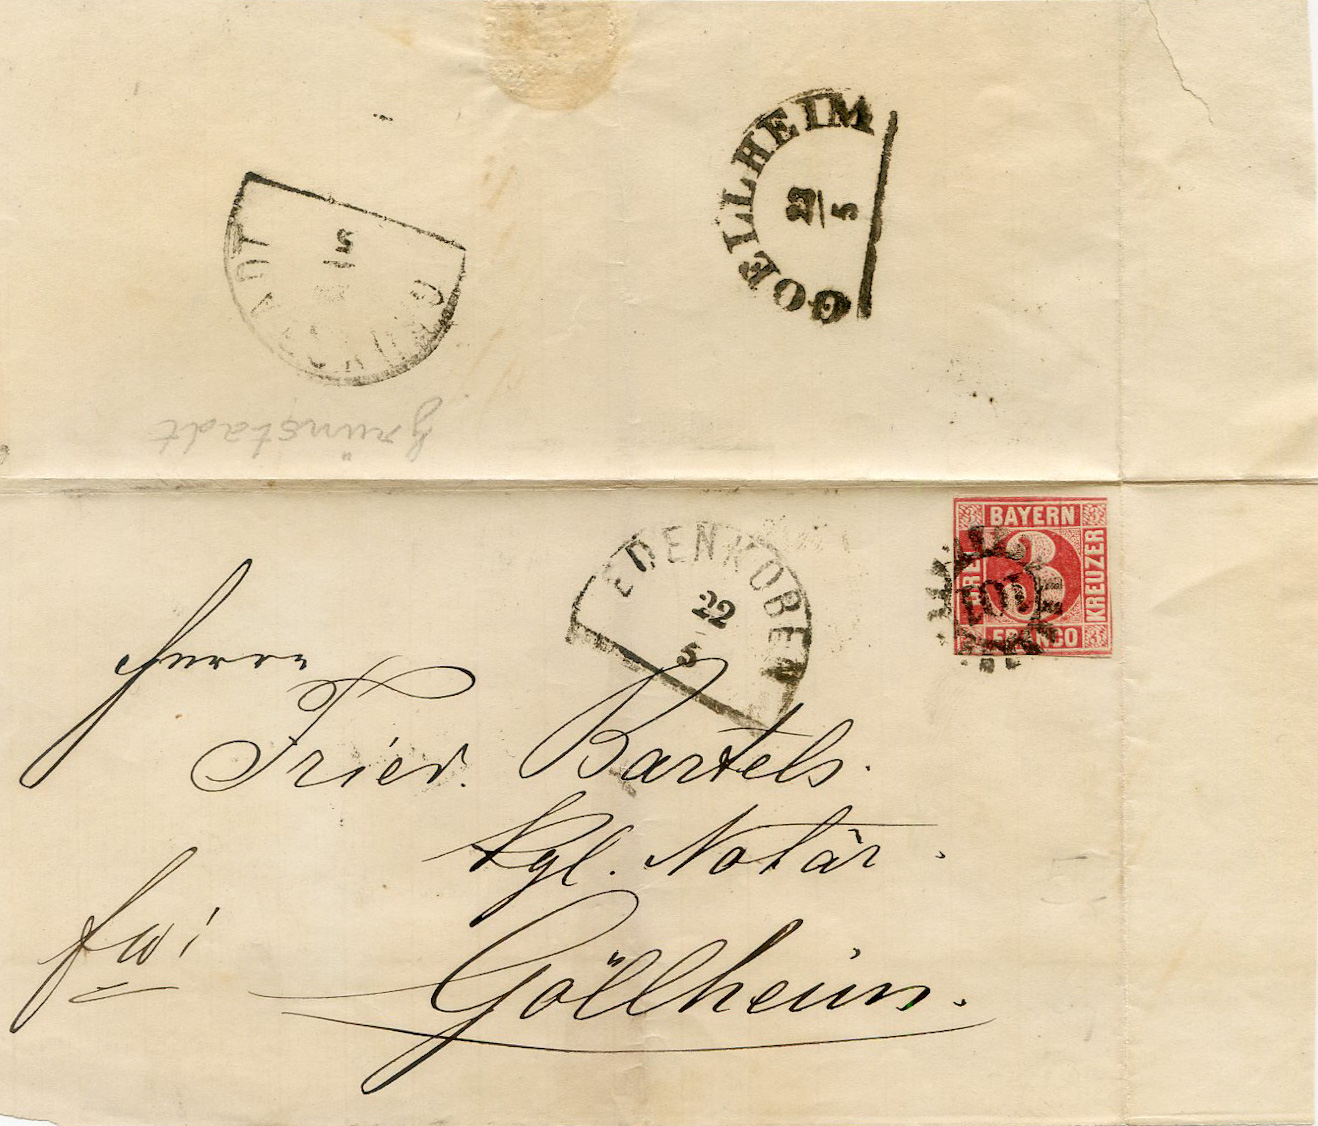 GOELLHEIM
23
5
GRÜNSTADT
5
Grünstadt
EDENKOBEN
22
5
BAYERN
3
KREUZER
FRANCO
101
Herrn
Fried. Bartels.
kgl. Notär.
Göllheim.